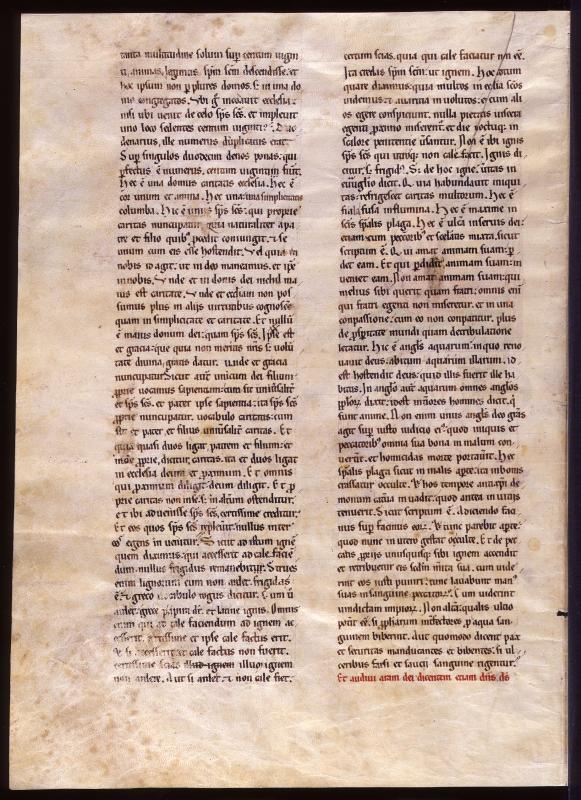 tanta multitudine solum sup centum uigin
ti animas legimus. spm scm descendisse. et
hoc ipsum non p plures domos. s; in una do
mo congregatos. Ubi g inchoauit ecclesia.
nisi ubi uenit de celo sps scs. et impleuit
uno loco sedentes centum uiginti? Duo
denarius. ille numerus duplicatus erat.
Sup singulos duodecim denos ponas. qui
pfectus e numerus. centum uiginti fiunt.
Hec e una domus caritatis ecclesia. Hec e
cor unum et anima. Hec una in simplicitate
columba. Hic e unus sps scs. qui proprie
caritas nuncupatur. quia naturaliter a pa
tre et filio quib; procedit coniungit. et se
unum cum eis esse hostendit. Vel quia in
nobis id agit. ut in deo maneamus. et ipse
in nobis. Unde et in donis dei nichil ma
ius est caritate. Unde et ecclesiam non pos
sumus plus in aliis uirtutibus cognoscere
quam in simplicitate et caritate. Et nullum
e maius donum dei. quam sps scs. Ipse est
et gracia. que quia non meritis nris s; uolu
tate diuina gratis datur. inde et gracia
nuncupatur. Sicut aut unicum dei filium
pprie uocamus sapientiam. cum sit uniuersalit
et sps scs. et pater ipse sapientia. ita sps scs
pprie nuncupatur. uocabulo caritatis. cum
sit et pater. et filius uniuersalit caritas. Et
quia quasi duos ligat. patrem et filium. et
pprie dicitur. caritas. ita et duos ligat
in ecclesia deum et proximum. Et omnis
qui proximum diligit deum diligit. Et p
prie caritas non in se. s; in alterum ostenditur.
et ibi aduenisse sps scs. certissime creditur.
Et eos quos sps scs repleuit. nullus inter
eos egens inuenitur. Sicut ad istum igne
quem diximus. qui accesserit ad cale facien
dum. nullus frigidus remanebitur. Strues
enim lignorum cum non ardet. frigidas
e. et greco uocabulo rogus dicitur. Cum u
ardet. grece papiri dr. et latine ignis. Omnis
enim qui ad cale faciendum ad ignem ac
cesserit. certissime et ipse cale factus erit.
Et si accesserit et cale factus non fuerit.
certissime scias illud ignem illuo ignem
non ardere. Aut si ardet. et non cale fiet.
certum scias. quia qui cale faciatur non e.
Ita credas spm scm. ut ignem. Hoc totum
quare diximus. quia multos in ecclia scos
uidemus. et auaritia inuolutos. et cum ali
os egere conspiciunt. nulla pietatis uiscera
egenti proximo miserent. et die noctuq; in
calore penitentie uisuntur. Non e ibi ignis
sps scs qui utroq; non cale facit. Ignis di
citur. s; frigidus. S; de hoc igne. ueritas in
euuglio dicit. Quia habundauit iniqui
tas. refrigescet caritas multorum. Hec e
fiala fusa in flumina. Hec e maxime in
scis spalis plaga. Hec e ulcus inseruis dei.
etiam cum peccatorib; et sceleratis mixta. sicut
scriptum e. Qui amat animam suam. p
det eam. Et qui pdiderit animam suam in
ueniet eam. Non amat animam suam. qui
melius sibi querit quam fratri. omnis eni
qui fratri egenti non miseretur. et in una
conpassione. cum eo non conpatitur. plus
de psperitate mundi quam de tribulatione
letatur. Hic e angls aquarum. in quo reno
uauit deus. abitum aquarum illarum. id
est hostendit deus. quid illis fuerit ille ha
bitus. In anglo aut aquarum omnes anglos
pploru dixit. idest interiores homines dicit. q
sunt anime. Non enim unus angls deo gras
agit sup iusto iudicio ei. quod iniquis et
peccatorib; omnia sua bona in malum con
uerterit. et homicidas morte portauerit. Hec
spalis plaga sicut in malis apte. ita in bonis
crassatur occulte. Et hos tempore antixpi de
monum catua inuadit. quod antea in uitiis
tenuerit. Sicut scriptum e. Adiciendo facinus
sup facimus eoru. Et tunc parebit apte.
quod nunc in utero gestat occulte. Et de pec
catis propriis unusquisq; sibi ignem accendit
et retribuetur eis scdm merita sua. cum uide
rint eos iusti puniri. tunc lauabunt manus
suas in sanguine peccatoris. Cum uiderint
uindictam impioru. Non alia. qualis ultio
potest e. s; pphiarum interfectores p aqua san
guinem biberint. Aut quomodo dicent pax
et securitas manducantes et bibentes. si ul
ceribus fusi et saucii sanguine rigentur.
Et audiui aram dei dicentem etiam dns ds